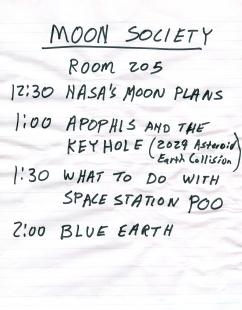 MOON SOCIETY
ROOM 205
12:30 NASA'S MOON PLANS
1:00 APOPHIS AND THE
KEYHOLE (2029 Asteroid
Earth Collision)
1:30 WHAT TO DO WITH
SPACE STATION POO
2:00 BLUE EARTH